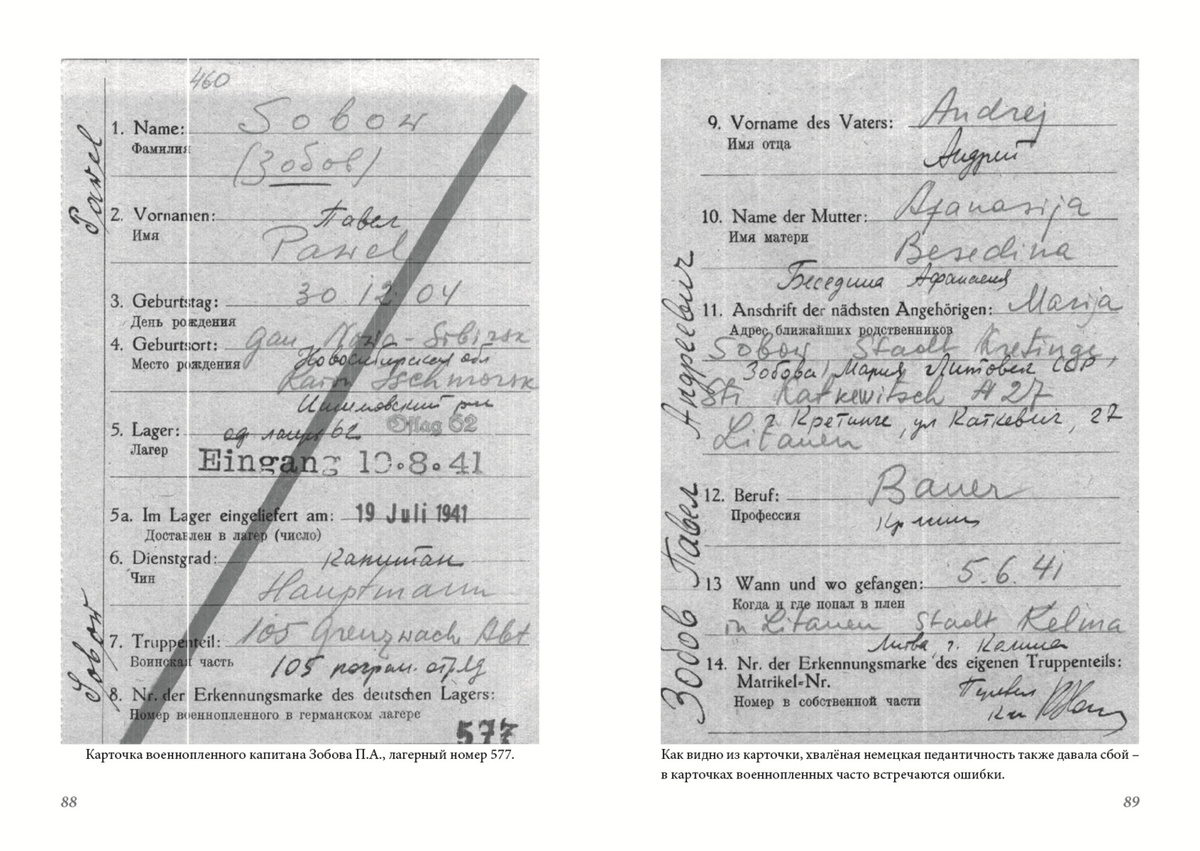 460
1. Name: Sobow
Фамилия
(Зобов)
2. Vornamen: Павел
Имя
Pawel
3. Geburtstag: 30.12.04
День рождения
4. Geburtsort: Gau Nowo-Sibirsk
Место рождения Новосибирская обл
Raion
5. Lager: Oflag 62
Лагерь
Eingang 10.8.41
5a. Im Lager eingeliefert am: 19 Juli 1941
Доставлен в лагерь (число)
6. Dienstgrad: Капитан
Чин
Hauptmann
7. Truppenteil: 105 Grenzwach Abt
Воинская часть 105 погран. отряд
8. Nr. der Erkennungsmarke des deutschen Lagers:
Номер военнопленного в германском лагере
577
Sobow Pawel
Карточка военнопленного капитана Зобова П.А., лагерный номер 577.
88
9. Vorname des Vaters: Andrej
Имя отца
Андрей
10. Name der Mutter: Afanasija
Имя матери
Besedina
Беседина Афанасия
11. Anschrift der nächsten Angehörigen: Marija
Адрес ближайших родственников
Sobow Stadt Kretinge,
Зобова Мария Литовск ССР,
Str Katkewitsch № 27
г. Кретинге, ул Каткевич, 27
Litauen
12. Beruf: Bauer
Профессия
13 Wann und wo gefangen: 5.6.41
Когда и где попал в плен
in Litauen Stadt Kelma
Литва, г. Кельма
14. Nr. der Erkennungsmarke des eigenen Truppenteils:
Matrikel-Nr.
Номер в собственной части
Зобов Павел Андреевич
Как видно из карточки, хвалёная немецкая педантичность также давала сбой –
в карточках военнопленных часто встречаются ошибки.
89